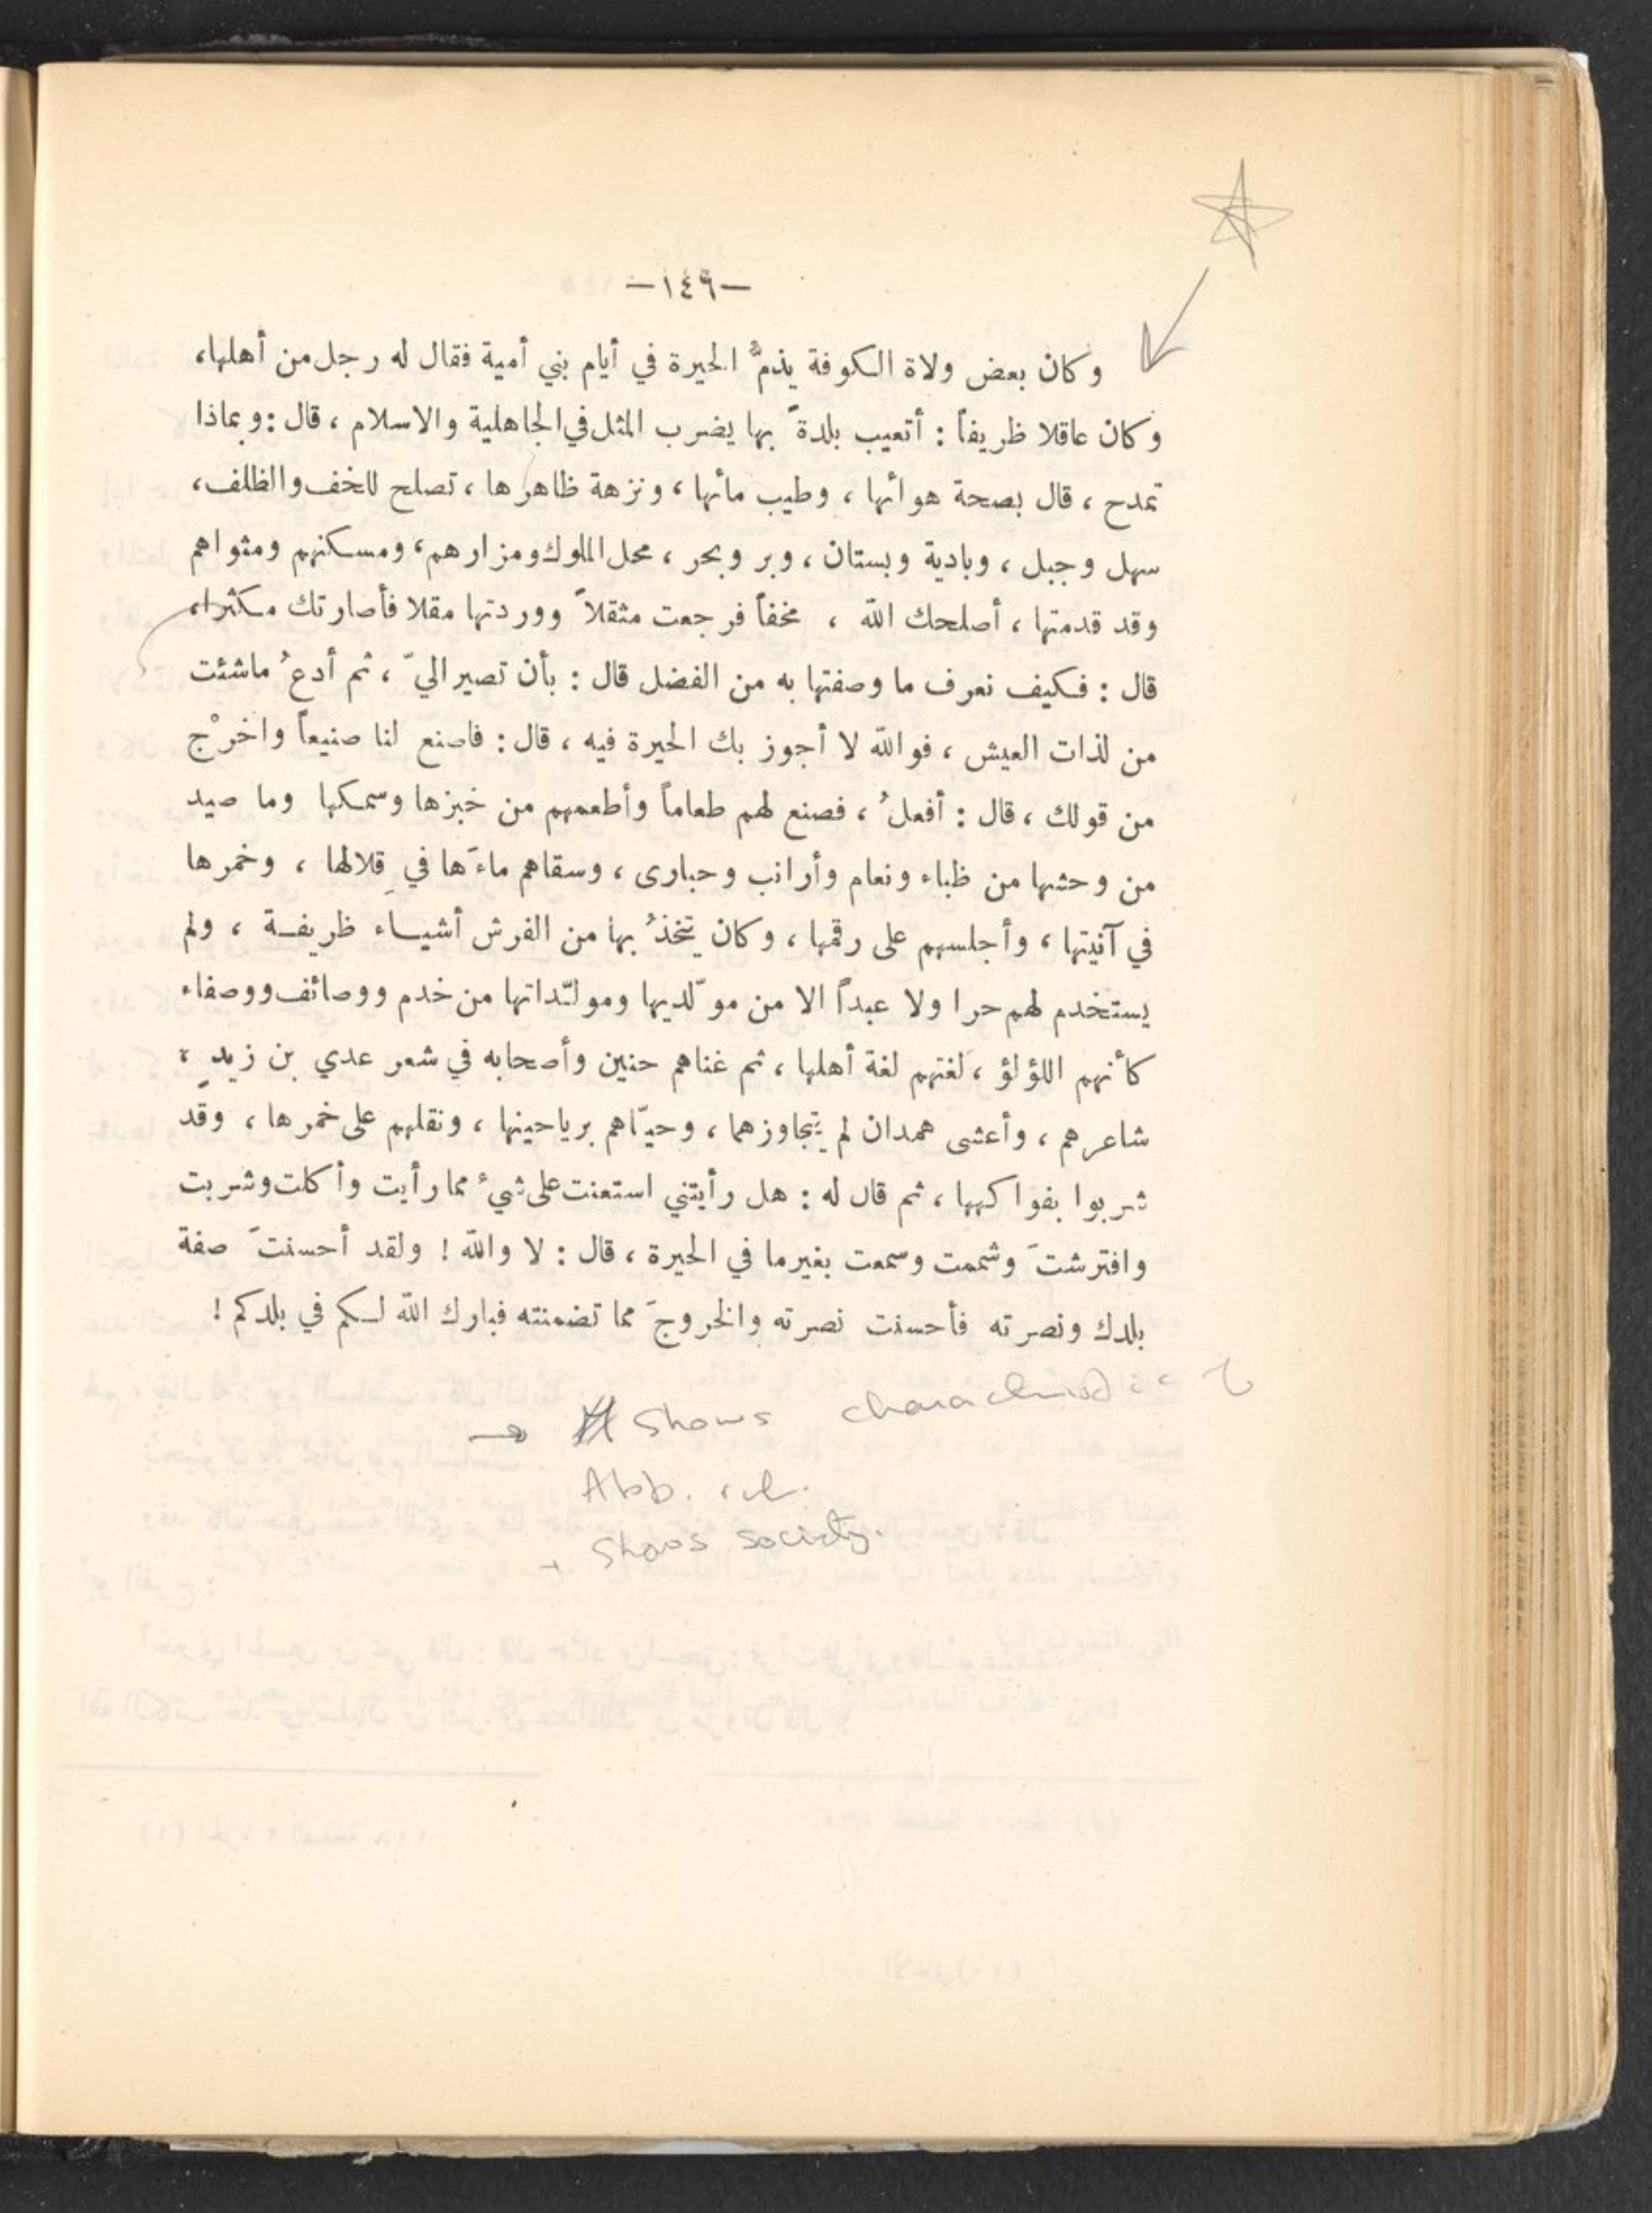 —١٤٦—
وكان بعض ولاة الكوفة يذمُّ الحيرة في أيام بني أمية فقال له رجل من أهلها،
وكان عاقلا ظريفاً : أتعيب بلدةً بها يضرب المثل في الجاهلية والاسلام ، قال : وبماذا
تمدح ، قال بصحة هوائها ، وطيب مائها ، ونزهة ظاهرها ، تصلح للخف والظلف،
سهل وجبل ، وبادية وبستان ، وبر وبحر ، محل الملوك ومزارهم ، ومسكنهم ومثواهم
وقد قدمتها ، أصلحك الله ، مخفاً فرجعت مثقلاً ووردتها مقلا فأصارتك مكثرا،
قال : فكيف نعرف ما وصفتها به من الفضل قال : بأن تصير اليّ ، ثم أدعُ ماشئت
من لذات العيش ، فوالله لا أجوز بك الحيرة فيه ، قال : فاصنع لنا صنيعاً واخرْج
من قولك ، قال : أفعلُ ، فصنع لهم طعاماً وأطعمهم من خبزها وسمكها وما صيد
من وحشها من ظباء ونعام وأرانب وحبارى ، وسقاهم ماءَها في قِلالها ، وخمرها
في آنيتها ، وأجلسهم على رقمها ، وكان يتخذُ بها من الفرش أشياء ظريفة ، ولم
يستخدم لهم حرا ولا عبداً الا من مولّديها ومولّداتها من خدم ووصائف ووصفاء
كأنهم اللؤلؤ ، لغتهم لغة أهلها ، ثم غناهم حنين وأصحابه في شعر عدي بن زيدٍ ،
شاعرهم ، وأعشى همدان لم يتجاوزهما ، وحيّاهم برياحينها ، ونقلهم على خمرها ، وقد
شربوا بفواكهها ، ثم قال له : هل رأيتني استعنت على شيء مما رأيت وأكلت وشربت
وافترشتَ وشممت وسمعت بغير ما في الحيرة ، قال : لا والله ! ولقد أحسنتَ صفة
بلدك ونصرته فأحسنت نصرته والخروجَ مما تضمنته فبارك الله لكم في بلدكم !
→ Shows
Abb.
+ Shows society.